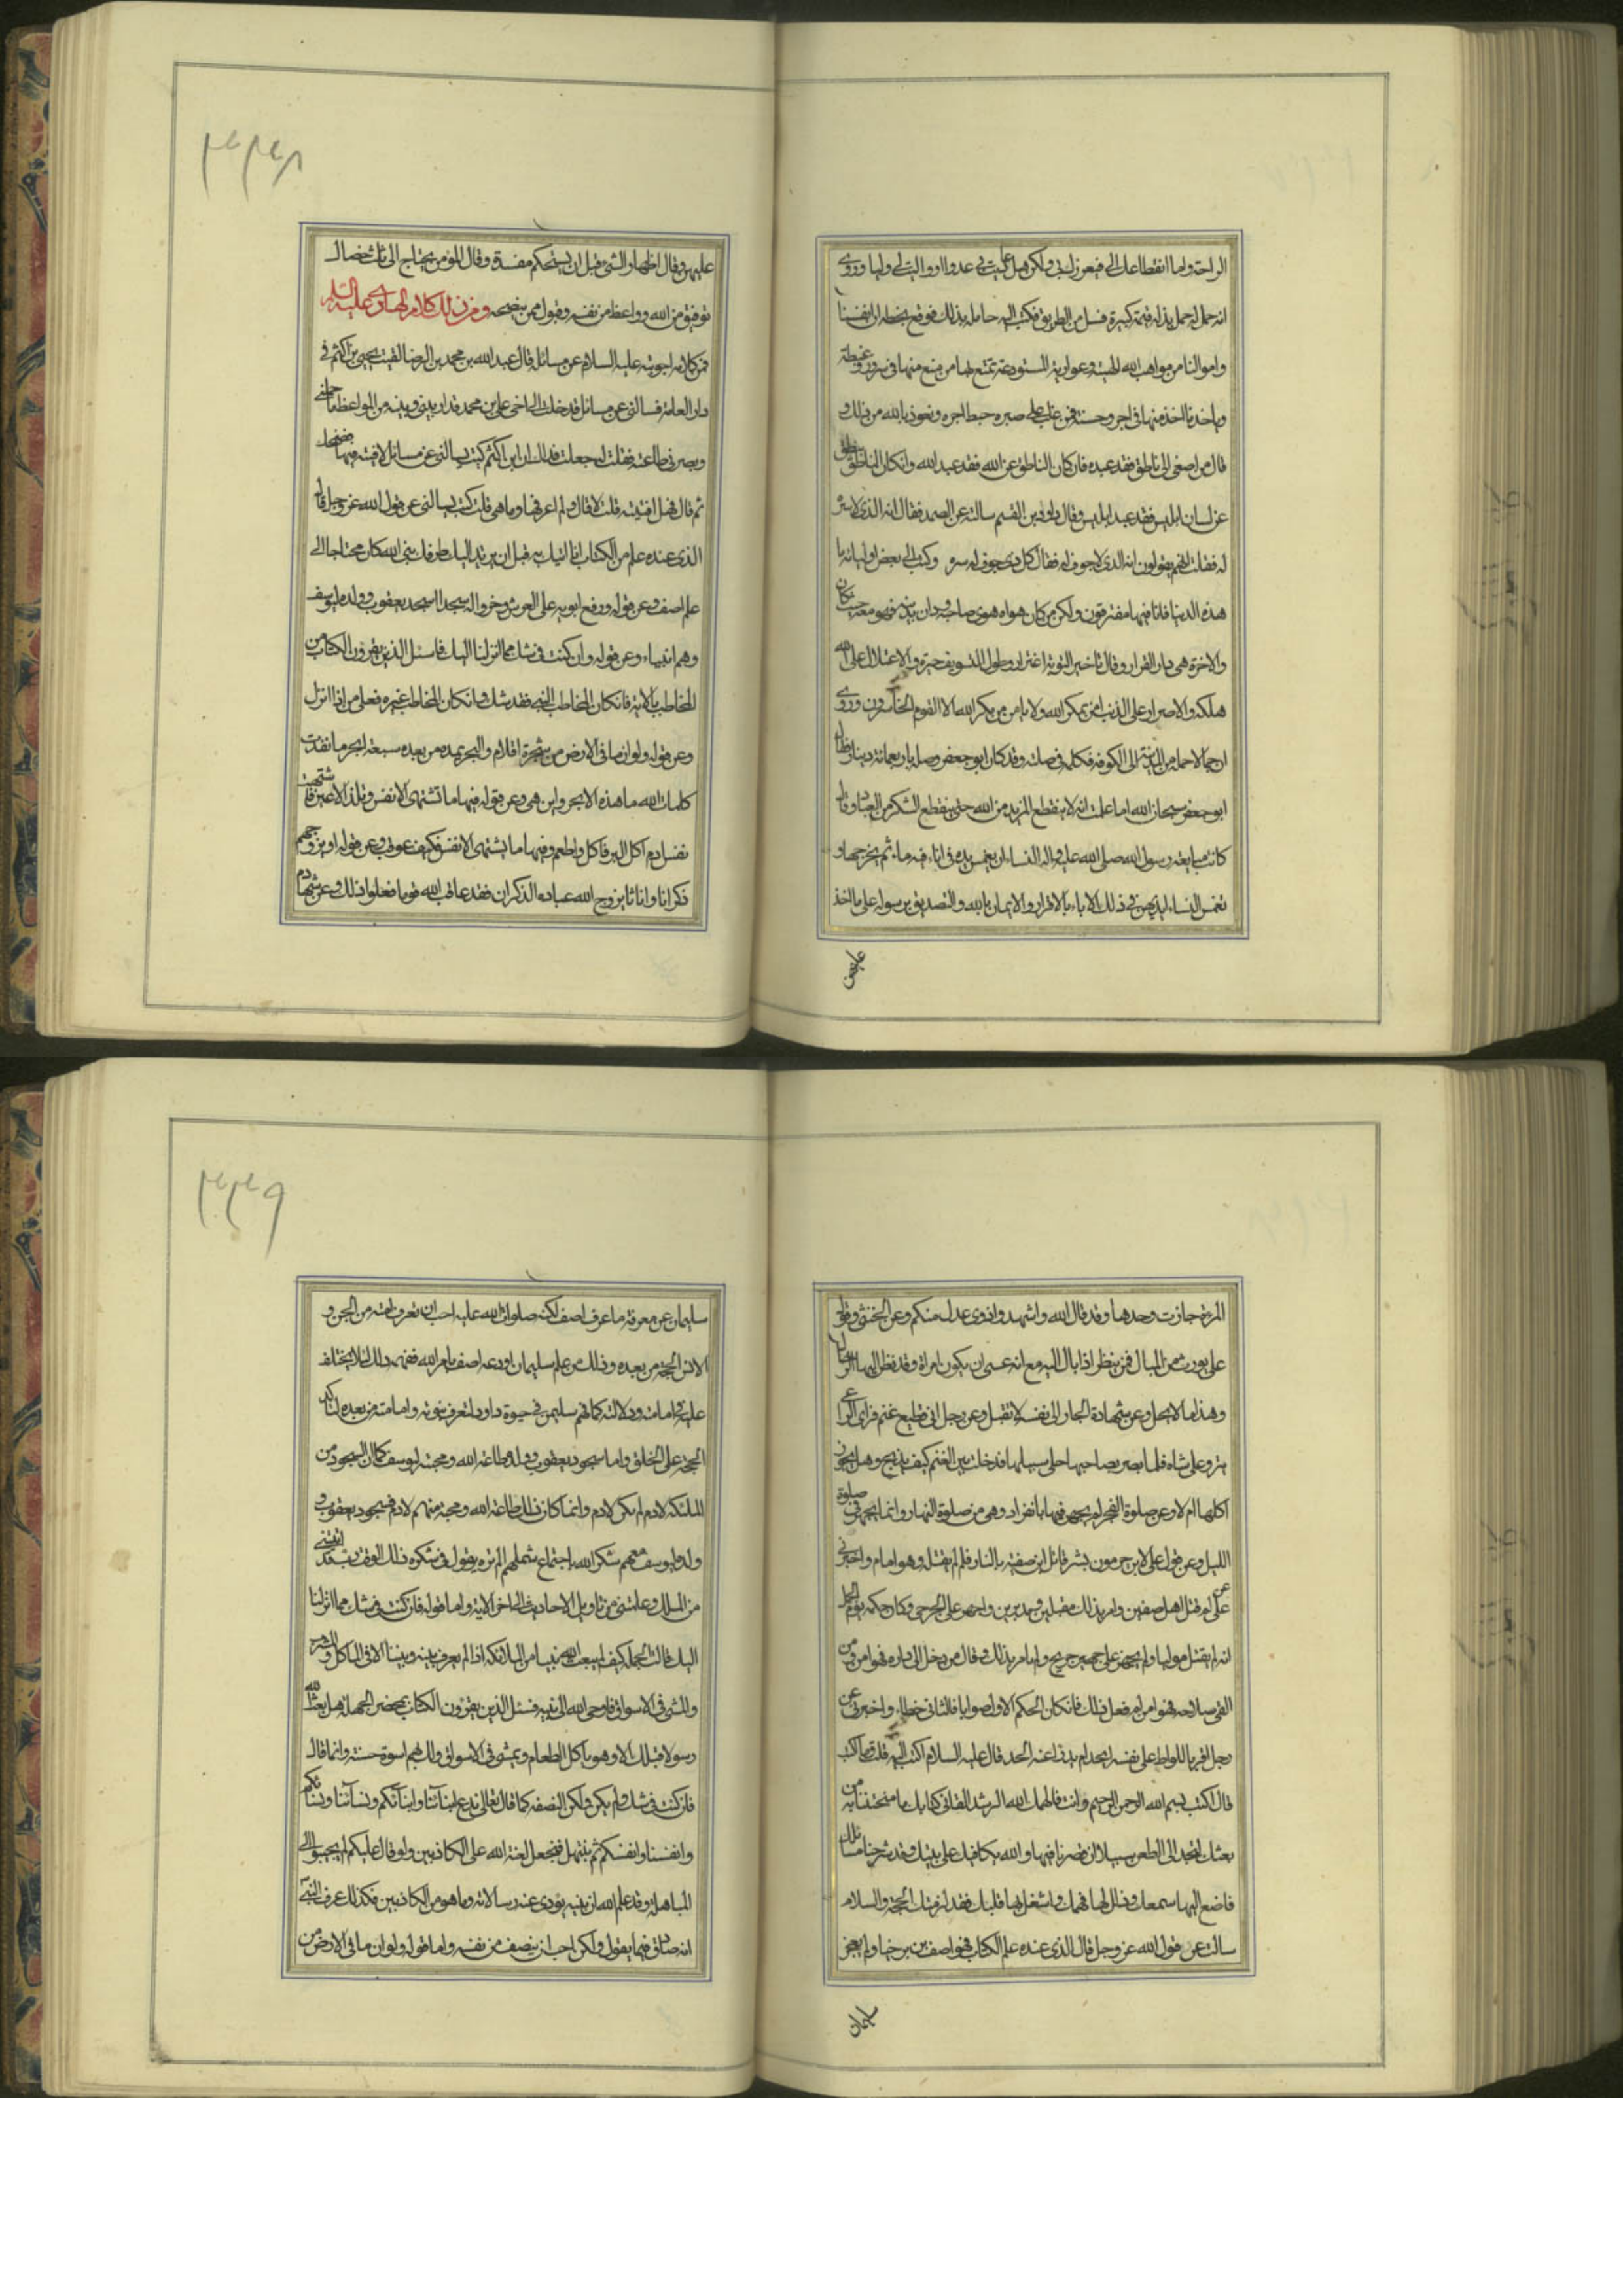 الراحة واما انقطاعك الي فيعززك بي ولكن هل عاديت لي عدوا او واليت لي وليا وروى
انه حمل له حمل بز له قيمة كبيرة فسل في الطريق فكتب اليه حامله بذلك فوقع بخطه ان انفسنا
واموالنا من مواهب الله الهنيئة وعواريه المستودعة يمتع بها من متع منها في سرور وغبطة
وياخذ ما اخذ منها في اجر وحسبة فمن غلب على صبره حبط اجره ونعوذ بالله من ذلك و
قال من اصغى الى ناطق فقد عبده فان كان الناطق عن الله فقد عبد الله وان كان الناطق ينطق
عن لسان ابليس فقد عبد ابليس وقال داود بن القسم سالته عن الصمد فقال انه الذي لا سرة
له فقلت انهم يقولون انه الذي لا جوف له فقال كل ذي جوف له سره وكتب الى بعض اوليائه اما
هذه الدنيا فانا فيها مفترقون ولكن من كان هواه هوى صاحبه ودان بدينه فهو معه حيث كان
والاخرة هي دار القرار وقال تاخير التوبة اغترار وطول التسويف حيرة والاعتلال على الله
هلكة والاصرار على الذنب امن لمكر الله ولا يامن من مكر الله الا القوم الخاسرون وروى
ان جمالا حمله من المدينة الى الكوفة فكلمه في صلته وقد كان ابو جعفر وصله باربعمائة دينار فقال
ابو جعفر سبحان الله اما علمت انه لا ينقطع المزيد من الله حتى ينقطع الشكر من العباد وقال
كانت مبايعة رسول الله صلى الله عليه واله النساء ان يغمس يده في اناء فيه ماء ثم يخرجها و
تغمس النساء ايديهن في ذلك الاناء بالاقرار والايمان بالله والتصديق برسوله على ما اخذ
عليهن
۳۳۸
عليهن وقال اظهار الشئ قبل ان يستحكم مفسدة وقال المؤمن يحتاج الى ثلث خصال
توفيق من الله وواعظ من نفسه وقبول ممن ينصحه ومن ذلك كلام الهادي عليه السلم
فمن كلامه اجوبته عليه السلام عن مسائل قال عبد الله بن محمد بن الرضا لقيت يحيى بن اكثم في
دار العامة فسالني عن مسائل فدخلت الى اخي علي بن محمد فدار بيني وبينه من المواعظ ما حملني
وبصرني طاعته فقلت له جعلت فداك ان ابن اكثم كتب يسالني عن مسائل لافتيه فيها فضحك
ثم قال فهل افتيته قلت لا قال ولم اعرفها وما هي قلت كتب يسالني عن قول الله عز وجل قال
الذي عنده علم من الكتاب انا اتيك به قبل ان يرتد اليك طرفك نبي الله كان محتاجا الى
علم اصف وعن قوله ورفع ابويه على العرش وخروا له سجدا اسجد يعقوب وولده ليوسف
وهم انبياء وعن قوله وان كنت في شك مما انزلنا اليك فاسئل الذين يقرؤن الكتاب من
المخاطب بالاية فان كان المخاطب النبي فقد شك وان كان المخاطب غيره فعلى من اذا انزل
وعن قوله ولو ان ما في الارض من شجرة اقلام والبحر يمده من بعده سبعة ابحر ما نفدت
كلمات الله ما هذه الابحر واين هي وعن قوله فيها ما تشتهي الانفس وتلذ الاعين فاشتهت
نفس ادم اكل البر فاكل واطعم وفيها ما يشتهى الانفس فكيف عوقب وعن قوله او يزوجهم
ذكرانا واناثا يزوج الله عباده الذكران فقد عاقب الله قوما فعلوا ذلك وعن شهادة
المرءة جازت وحدها وقد قال الله واشهدوا ذوى عدل منكم وعن الخنثى وقول
علي يورث من المبال فمن ينظر اذا بال اليه مع انه عسى ان يكون امراة وقد نظر اليها الرجال
وهذا ما لا يحل وعن شهادة الجار الى نفسه لا تقبل وعن رجل اتى قطيع غنم فراى الراعي
ينزو على شاة فلما بصر بصاحبها خلى سبيلها فدخلت بين الغنم كيف يذبح وهل يجوز
اكلها ام لا وعن صلوة الفجر لم يجهر فيها بانفراد وهي من صلوة النهار وانما يجهر في صلوة
الليل وعن قول علي لابن جرموز بشر قاتل ابن صفية بالنار فلم لم يقتله وهو امام واخبرني
عن علي لم قتل اهل صفين وامر بذلك مقبلين ومدبرين واجهز على الجرحى وكان حكمه يوم الجمل
انه لم يقتل موليا ولم يجهز على جريح ولم يامر بذلك وقال من دخل الى داره فهو امن ومن
القى سلاحه فهو امن لم فعل ذلك فان كان الحكم الاول صوابا فالثاني خطاء واخبرني عن
رجل اقر باللواط على نفسه ايحد ام يدرا عنه الحد قال عليه السلام اكتب اليه قلت وما اكتب
قال اكتب بسم الله الرحمن الرحيم وانت فالهمك الله الرشد القاني كتابك بما امتحنتنا به من
تعنتك لتجد الى الطعن سبيلا ان قصرنا فيها والله يكافيك على نيتك وقد شرحنا مسائلك
فاصغ اليها سمعك وذلل لها فهمك واشغل بها قلبك فقد لزمتك الحجة والسلام
سالت عن قول الله عز وجل قال الذي عنده علم الكتاب فهو اصف بن برخيا ولم يعجز
سليمان
۳۳۹
سليمان عن معرفة ما عرف اصف لكنه صلوات الله عليه احب ان تعرف امته من الجن و
الانس الحجة من بعده وذلك من علم سليمان اودعه اصف بامر الله ففهمه ذلك لئلا يختلف
عليه في امامته ودلالته كما فهم سليمن في حيوة داود لتعرف نبوته وامامته من بعده لتاكيد
الحجة على الخلق واما سجود يعقوب وولده طاعة لله ومحبة ليوسف كما ان السجود من
الملئكة لادم لم يكن لادم وانما كان ذلك طاعة لله ومحبة منهم لادم فسجود يعقوب و
ولده ويوسف معهم شكر الله باجتماع شملهم الم تره يقول في شكره ذلك الوقت رب قد اتيتني
من الملك وعلمتني من تاويل الاحاديث الى اخر الاية واما قوله فان كنت في شك مما انزلنا
اليك قالت الجهلة كيف لم يبعث الله نبيا من الملائكة اذ لم يعرف بينه وبيننا الا في الماكل والمشرب
والمشي في الاسواق فاوحى الله الى نبيه فسئل الذين يقرؤن الكتاب بمحضر الجهلة هل بعث الله
رسولا قبلك الا وهو ياكل الطعام ويمشي في الاسواق ولك بهم اسوة حسنة وانما قال
فان كنت في شك ولم يكن ولكن النصفة كما قال تعالى ندع ابنائنا وابنائكم ونسائنا ونسائكم
وانفسنا وانفسكم ثم نبتهل فنجعل لعنة الله على الكاذبين ولو قال عليكم لم يجيبوا الى
المباهلة وقد علم الله ان نبيه يؤدى عنه رسالاته وما هو من الكاذبين فكذلك عرف النبي
انه صادق فيما يقول ولكن احب ان ينصف من نفسه واما قوله ولو ان ما في الارض من